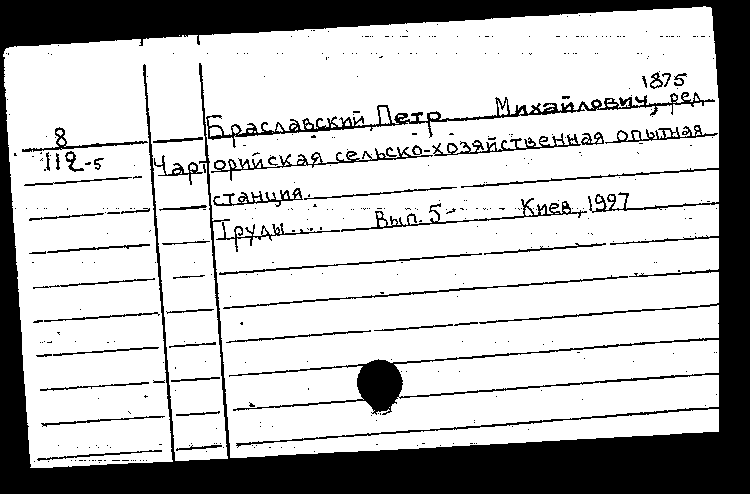 1875
Браславский, Петр Михайлович, ред
8
112-5 Чарторийская сельско-хозяйственная опытная
станция.
Труды.... Вып. 5- Киев, 1927